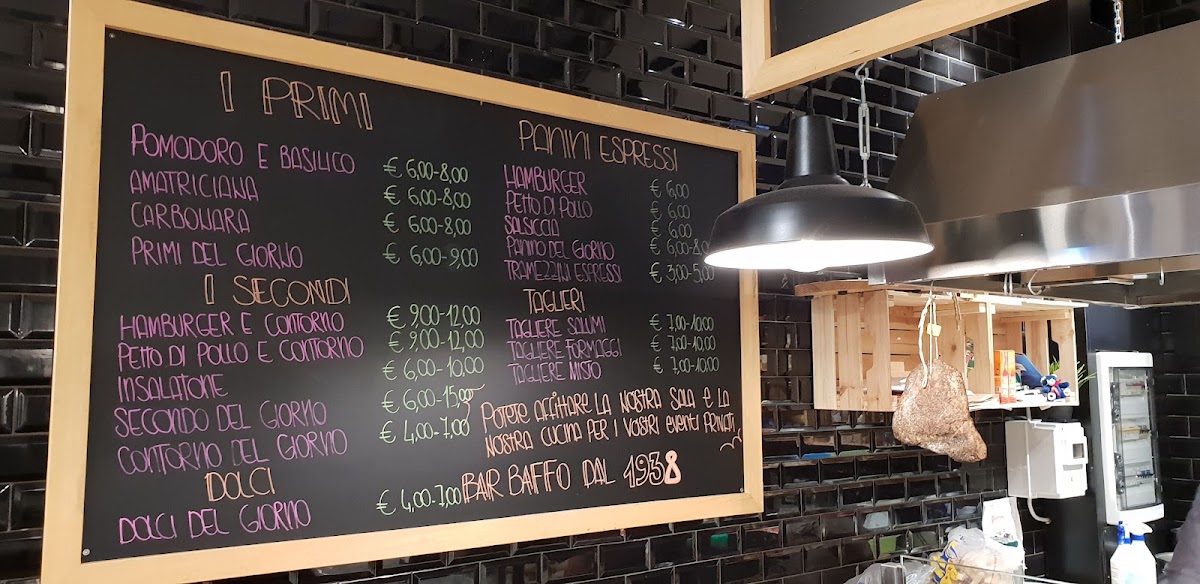 I PRIMI
POMODORO E BASILICO € 6,00-8,00
AMATRICIANA € 6,00-8,00
CARBONARA € 6,00-8,00
PRIMI DEL GIORNO € 6,00-9,00
I SECONDI
HAMBURGER E CONTORNO € 9,00-12,00
PETTO DI POLLO E CONTORNO € 9,00-12,00
INSALATONE € 6,00-10,00
SECONDO DEL GIORNO € 6,00-15,00
CONTORNO DEL GIORNO € 4,00-7,00
DOLCI
DOLCI DEL GIORNO € 4,00-7,00
PANINI ESPRESSI
HAMBURGER € 6,00
PETTO DI POLLO € 6,00
SALSICCIA € 6,00
PANINO DEL GIORNO € 6,00-8,0
TRAMEZZINI ESPRESSI € 3,00-5,00
TAGLIERI
TAGLIERE SALUMI € 7,00-10,00
TAGLIERE FORMAGGI € 7,00-10,00
TAGLIERE MISTO € 7,00-10,00
POTETE AFFITTARE LA NOSTRA SALA E LA
NOSTRA CUCINA PER I VOSTRI EVENTI PRIVATI
BAR BAFFO DAL 1938